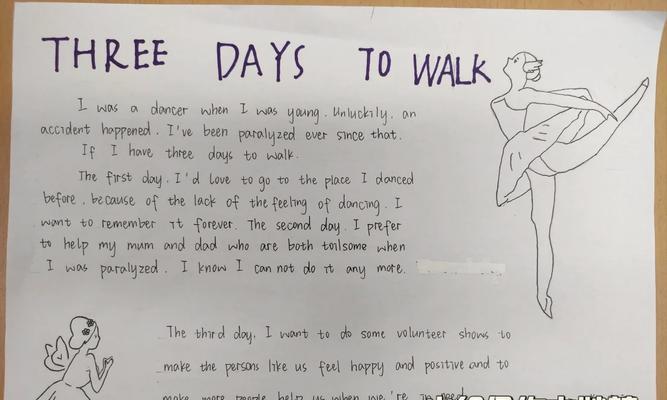 THREE DAYS TO WALK
I was a dancer when I was young. Unluckily. an
accident happened. I've been paralyzed ever since that.
If I have three days to walk.
The first day. I'd love to go to the place I danced
before. because of the lack of the feeling of dancing. I
want to remember it forever. The second day. I prefer
to help my mum and dad who are both toilsome when
I was paralyzed. I know I can not do it any more.
The third day. I want to do some volunteer shows to
make the persons like us feel happy and positive and to
make more people help us when we're in need